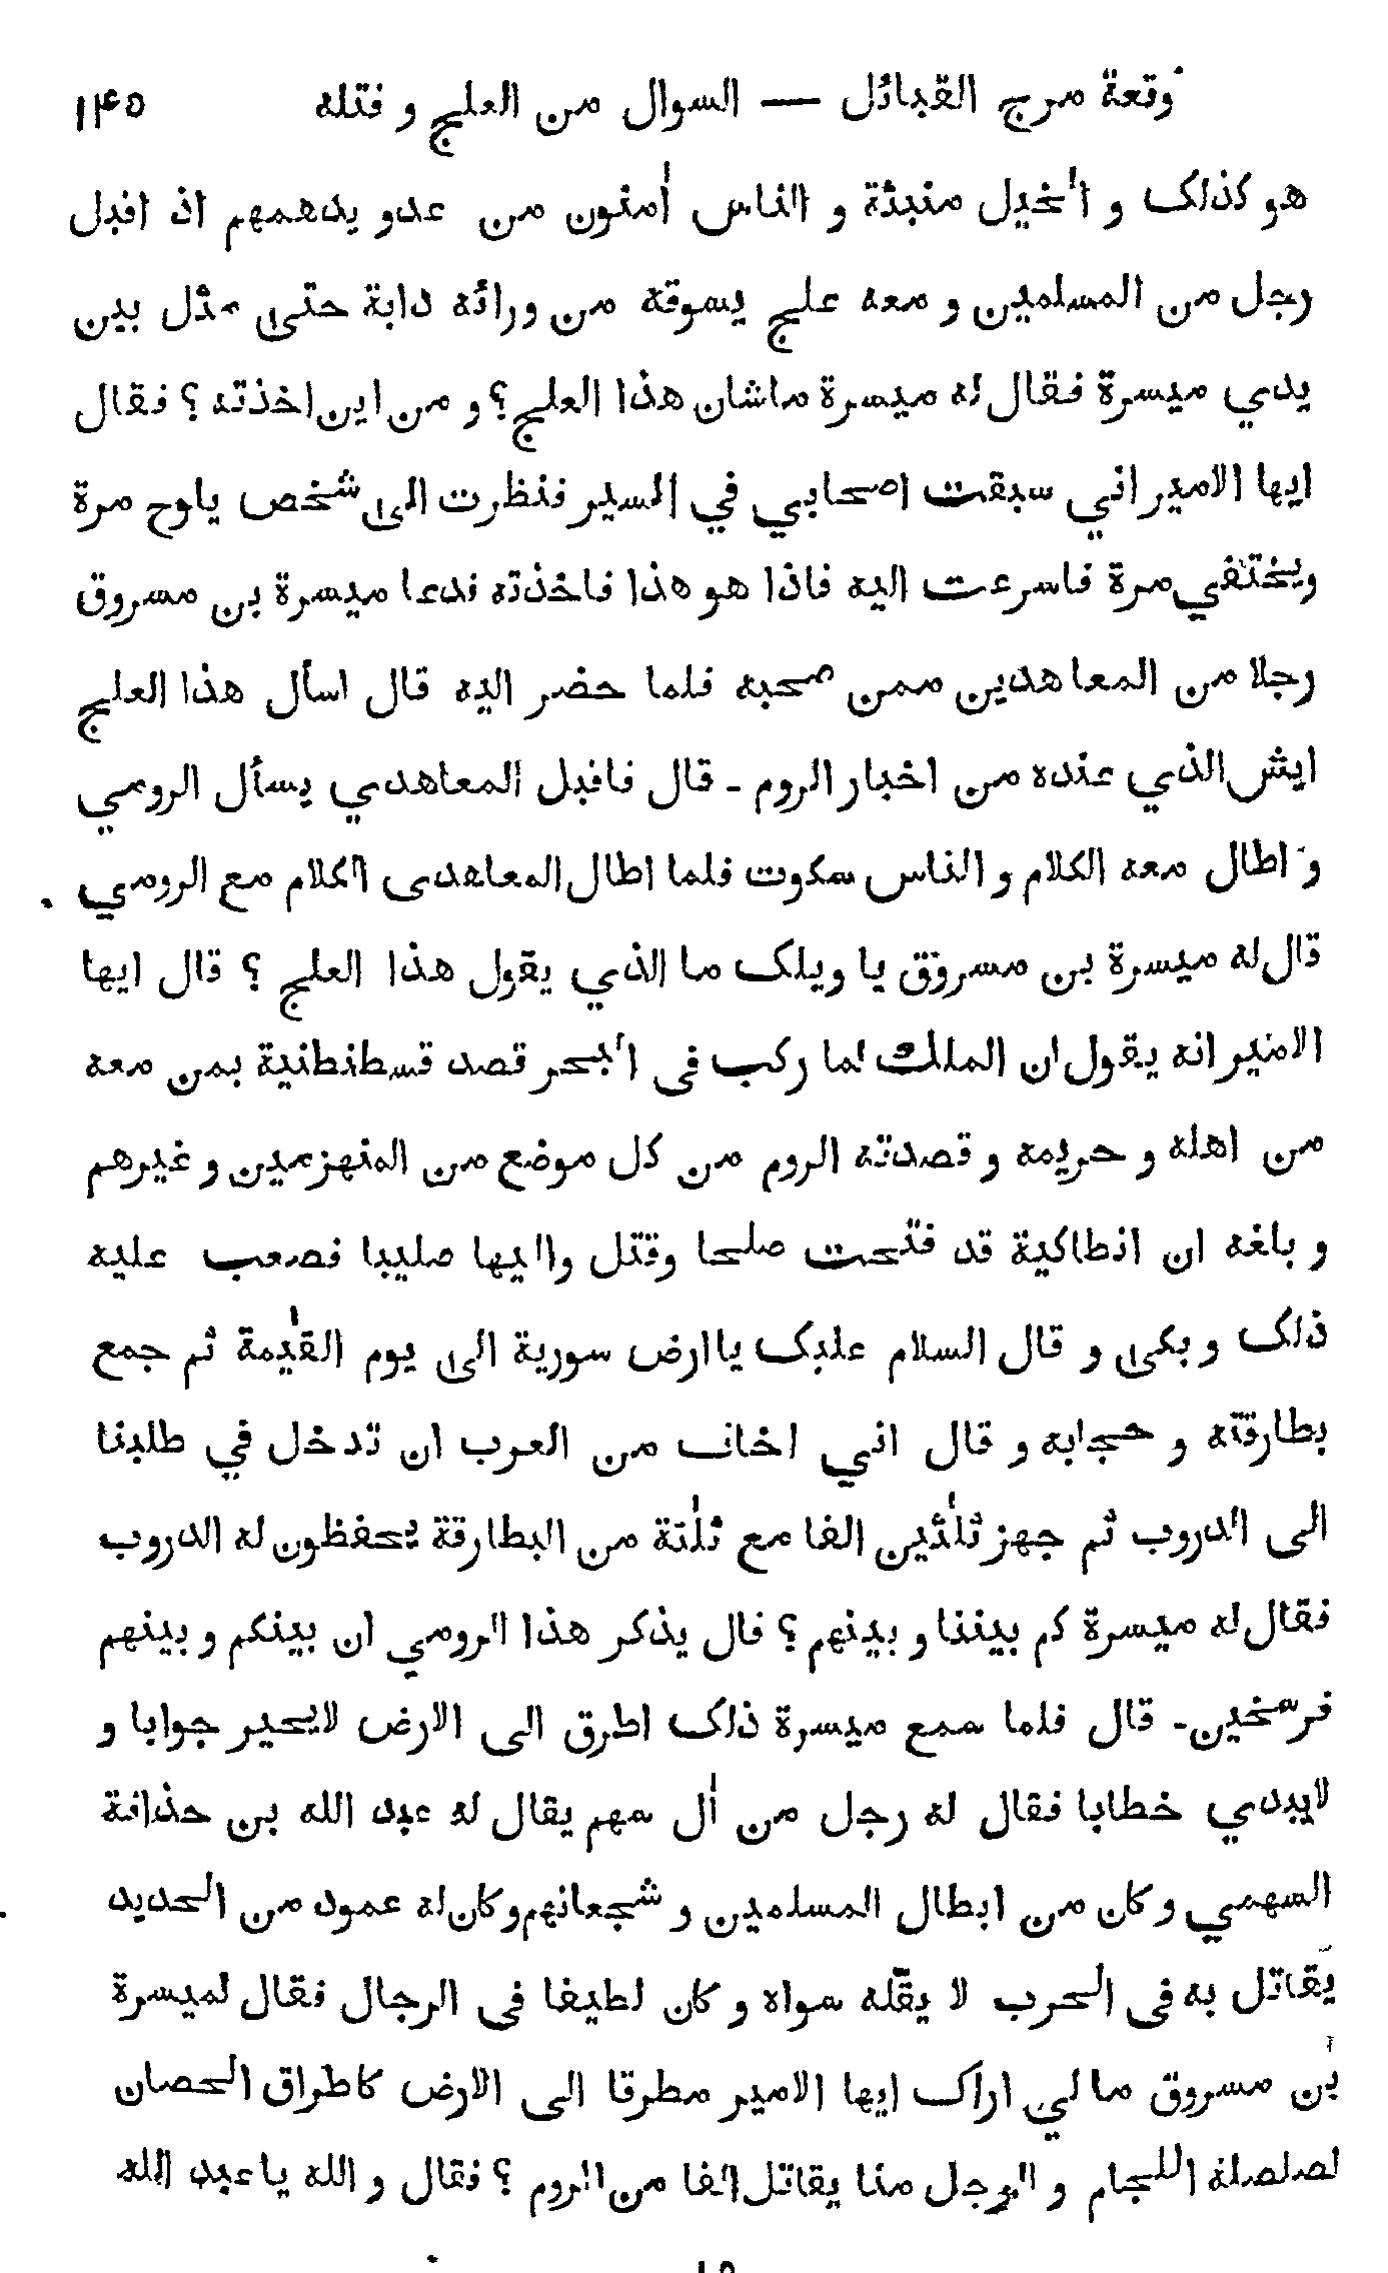 وقعة مرج القبائل — السوال من العلج و قتله ١٤٥
هو كذلك و الخيل منبثة و الناس أمنون من عدو يدهمهم اذ اقبل
رجل من المسلمين و معه علج يسوقه من ورائه دابة حتى مثل بين
يدي ميسرة فقال له ميسرة ماشان هذا العلج ؟ و من اين اخذته ؟ فقال
ايها الامير اني سبقت اصحابي في السير فنظرت الى شخص يلوح مرة
ويختفي مرة فاسرعت اليه فاذا هو هذا فاخذته فدعا ميسرة بن مسروق
رجلا من المعاهدين ممن صحبه فلما حضر اليه قال اسأل هذا العلج
ايش الذي عنده من اخبار الروم - قال فاقبل المعاهدي يسأل الرومي
و اطال معه الكلام و الناس سكوت فلما اطال المعاهدى الكلام مع الرومي
قال له ميسرة بن مسروق يا ويلك ما الذي يقول هذا العلج ؟ قال ايها
الامير انه يقول ان الملك لما ركب فى البحر قصد قسطنطنية بمن معه
من اهله و حريمه و قصدته الروم من كل موضع من المنهزمين و غيرهم
و بلغه ان انطاكية قد فتحت صلحا وقتل واليها صليبا فصعب عليه
ذلك و بكى و قال السلام عليك يا ارض سورية الى يوم القيٰمة ثم جمع
بطارقته و حجابه و قال اني اخاف من العرب ان تدخل في طلبنا
الى الدروب ثم جهز ثلٰثين الفا مع ثلٰثة من البطارقة يحفظون له الدروب
فقال له ميسرة كم بيننا و بينهم ؟ قال يذكر هذا الرومي ان بينكم و بينهم
فرسخين - قال فلما سمع ميسرة ذلك اطرق الى الارض لايحير جوابا و
لايبدي خطابا فقال له رجل من أل سهم يقال له عبد الله بن حذافة
السهمي و كان من ابطال المسلمين و شجعانهم و كان له عمود من الحديد
يقاتل به فى الحرب لا يقلّه سواه و كان لطيفا فى الرجال فقال لميسرة
بن مسروق ما لي اراك ايها الامير مطرقا الى الارض كاطراق الحصان
لصلصلة اللجام و الرجل منا يقاتل الفا من الروم ؟ فقال و الله يا عبد الله
١٩